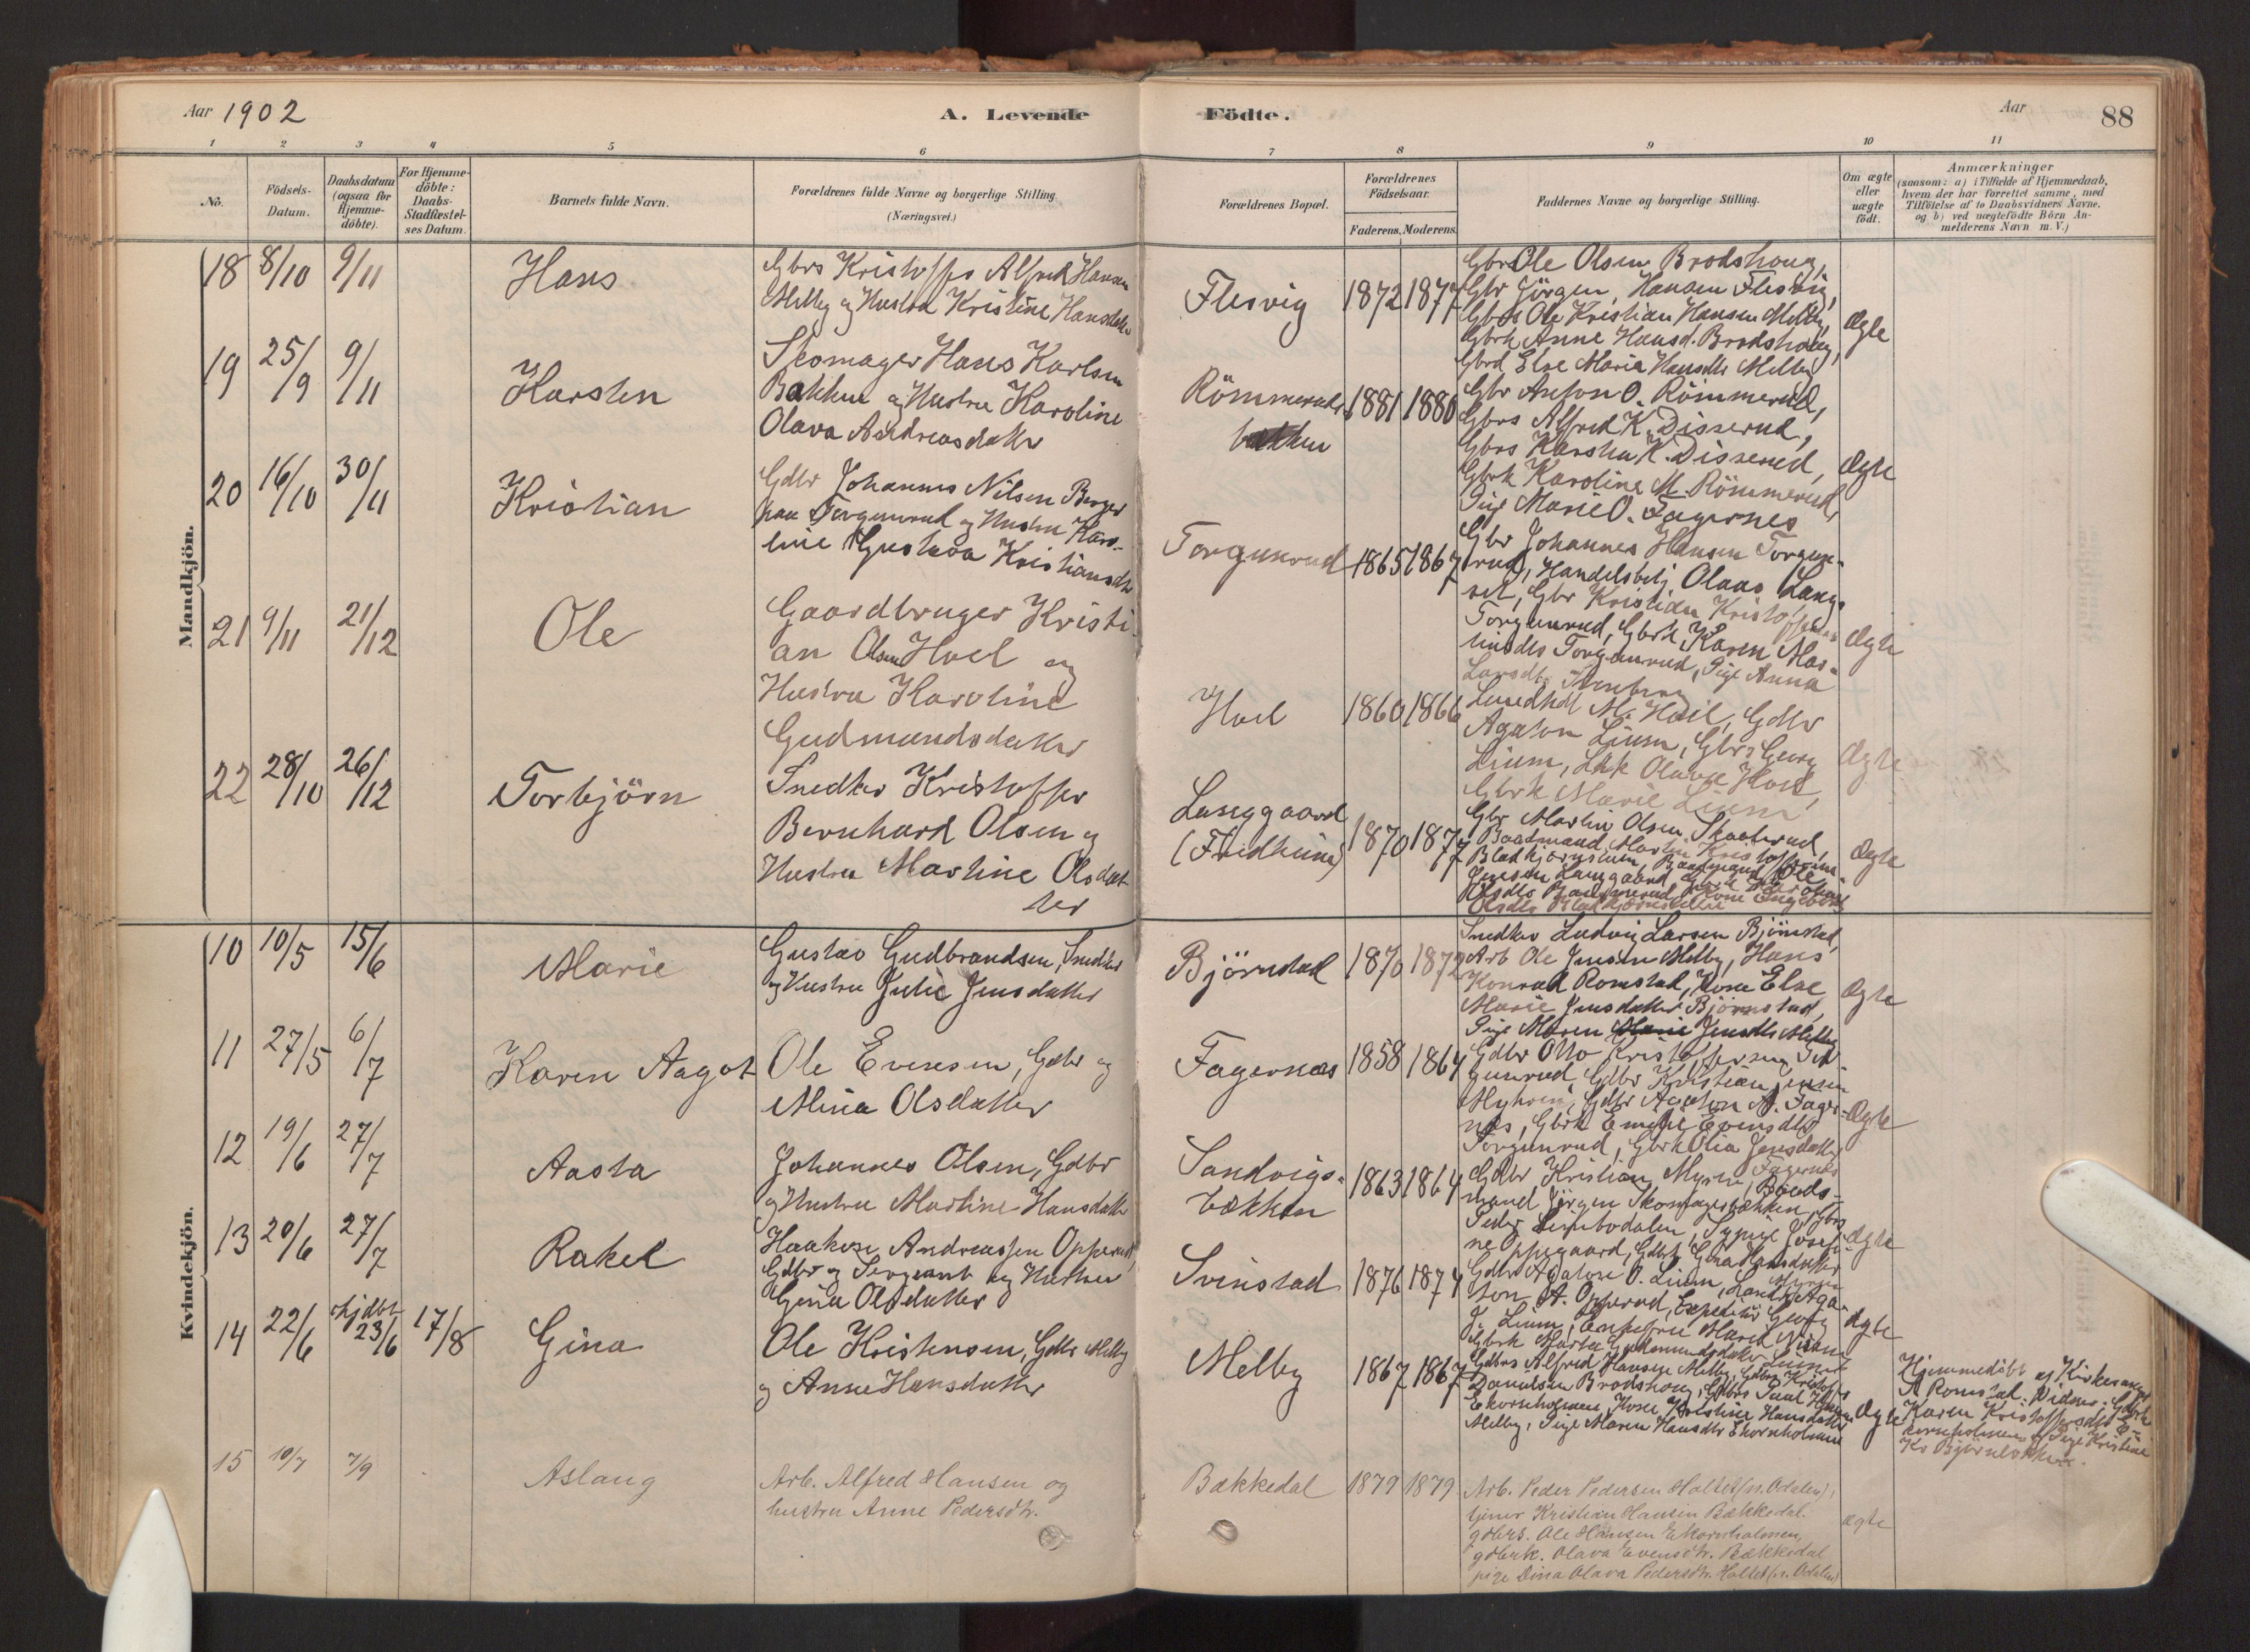 Aar 1902
A. Levende
Födte.
Aar
88
1 2 3 4 5 6 7 8 9 10 11
No.
Födsels-
Datum.
Daabsdatum
(ogsaa for
Hjemme-
döbte).
For Hjemme-
döbte:
Daabs-
Stadfæstel-
ses Datum.
Barnets fulde Navn.
Forældrenes fulde Navne og borgerlige Stilling
(Næringsvei.)
Forældrenes Bopæl.
Forældrenes
Födselsaar.
Faderens. Moderens.
Faddernes Navne og borgerlige Stilling.
Om ægte
eller
uægte
födt.
Anmærkninger
(saasom: a) i Tilfælde af Hjemmedaab,
hvem der har forrettet samme, med
Tilföielse af to Daabsvidners Navne.
og b) ved uægtefödte Börn An-
melderens Navn m. V.)
Mandkjön.
18 8/10 9/11
Hans
Gbrs Kristoffer Alfred Hansen
Melby og Hustru Kristine Hansdatter
Flesvig
1872 1877
Gbr Ole Olsen Brodshoug,
Gbr Jörgen Hansen Flesvig,
Gbrs Ole Kristian Hansen Melby,
Gbrk Anne Hansd. Brodshoug,
Gbrd Else Marie Hansdtr Melby
Ægte
19 25/9 9/11
Karsten
Skomager Hans Karlsen
Bakken og Hustru Karoline
Olava Andreasdatter
Römmeruds-
bakken
1881 1880
Gbr Anton O. Römmerud,
Gbrs Alfred K. Disserud,
Gbrs Karsten K. Disserud,
Gbrk Karoline M. Römmerud,
Pige Marie O. Fagernes
Ægte
20 16/10 30/11
Kristian
Gdbr Johannes Nilsen Berger
paa Torgunrud og Hustru Karo-
line Gustava Kristiansdtr
Torgunrud
1865 1867
Gbr Johannes Hansen Torgun-
rud, Handelsbetj Olaus Lang-
set, Gbr Kristian Kristoffersen
Torgunrud, Gbrk Karen Mar-
tinsdtr Torgunrud, Pige Anna
Larsdtr
Ægte
21 9/11 21/12
Ole
Gaardbruger Kristi-
an Olsen Hoel og
Hustru Karoline
Gudmundsdatter
Hoel
1860 1866
M. Hoel, Gdbr
Agaton Lium, Gbrs Georg
Lium, Olava Hoel,
Gbrk Marie Lium
Ægte
22 28/10 26/12
Torbjörn
Snedker Kristoffer
Bernhard Olsen og
Hustru Martine Olsdat-
ter
Langgaard
(Fredheim)
1870 1877
Gbr Martin Olsen Skaaterud,
Baadsmand Martin Kristoffersen
Bladkjærnshem, Baadsmand Ole
Jensen Langgaard
Ægte
Kvindekjön.
10 10/5 15/6
Marie
Gustav Gudbrandsen, Snedker
og Hustru Julie Jensdatter
Björnstad
1870 1872
Snedker Ludvig Larsen Björnstad,
Arb Ole Jensen Melby, Hans
Konrad Romstad, Kone Else
Marie Jensdatter Björnstad,
Pige Maren Jensdtr Melby
Ægte
11 27/5 6/7
Karen Aagot
Ole Evensen, Gdbr og
Mina Olsdatter
Fagernæs
1858 1864
Gdbr Otto Kristoffersen Tor-
gunrud, Gdbr Kristian Jensen
Myhren, Gdbr Agaton A. Fager-
næs, Gbrk Emilie Evensdtr
Torgunrud, Gbrk Olia Jensdatter
Fagernæs
Ægte
12 19/6 27/7
Aasta
Johannes Olsen, Gdbr
og Hustru Martine Hansdatter
Sandvigs-
bækken
1863 1864
Gdbr Kristian Myren, Baads-
mand Jörgen Skomagerbækken, Gbrs
Peder Lembodalen, Sypige Josefi-
ne Oppegaard, Gdbrk Gina Hansdatter
Myren
Ægte
13 20/6 27/7
Rakel
Haakon Andreassen Opperud,
Gdbr og Sergeant og Hustru
Gina Olsdatter
Svinstad
1876 1874
Gdbr Agaton O. Lium, Aga-
ton A. Opperud, Expeditör Georg
J. Lium, Marie
Gbrk Marta Gudmundsdatter Lium
Ægte
14 22/6 hjdbt 23/6 17/8
Gina
Ole Kristensen, Gdbr Melby
og Anne Hansdatter
Melby
1867 1867
Gdbrs Alfred Hansen Melby, Gdbrs Kristoffer
Danielsen Brodshoug, Gdbrs Paul Hansen
Ekornholmen, Kone Kristine Hansdatter
Melby, Pige Maren Hansdtr Ekornholmen
Ægte
Hjemmedöbt af Kirkesanger
A Romstad. Vidner: Gdbrk
Karen Kristoffersdtr E-
kornholmen og Pige Kristine
Kr Bjørnebækken.
15 10/7 7/9
Aslaug
Arb. Alfred Hansen og
hustru Anne Pedersdtr.
Bækkedal
1879 1879
Arb. Peder Pedersen Holset (n. Odalen),
tjener Kristian Hansen Bækkedal.
gdbrs. Ole Hansen Ekornholmen,
gdbrk. Olava Evensdtr. Bækkedal
pige Dina Olava Pedersdtr. Holset (n. Odalen)
ægte